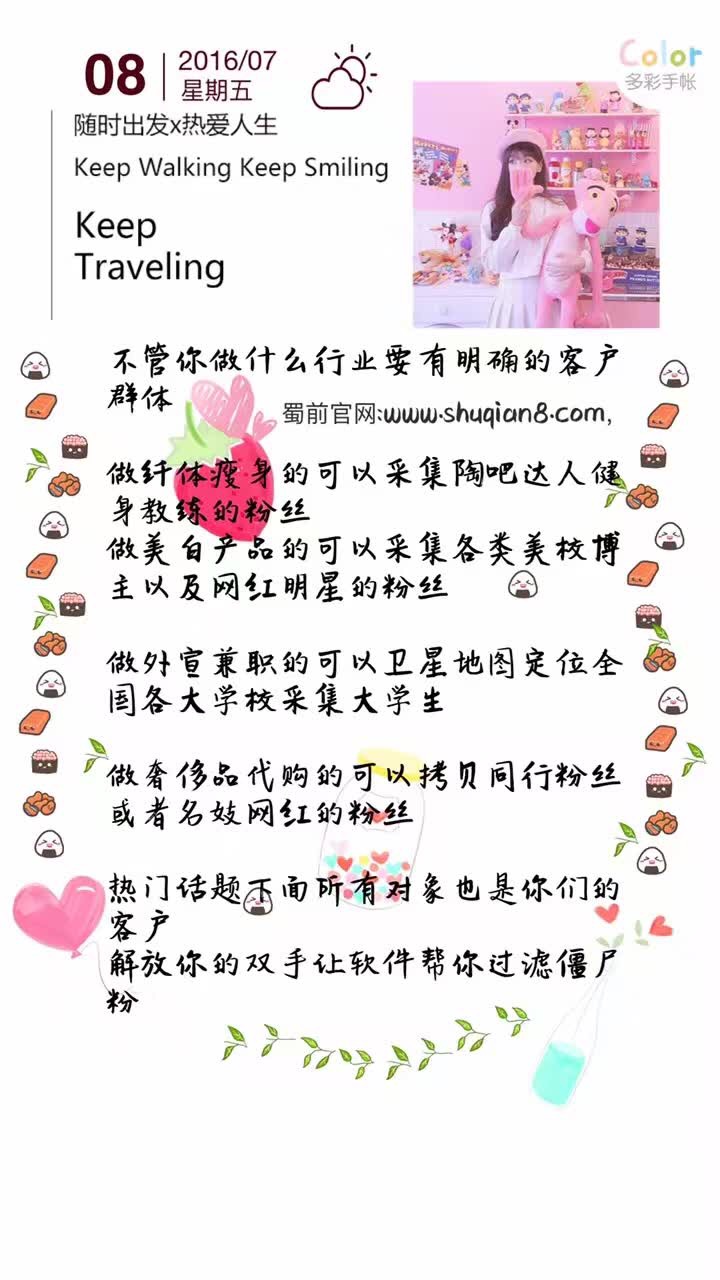 08
2016/07
星期五
Color
多彩手帐
随时出发x热爱人生
Keep Walking Keep Smiling
Keep
Traveling
不管你做什么行业要有明确的客户
群体
蜀前官网:www.shuqian8.com,
做纤体瘦身的可以采集陶吧达人健
身教练的粉丝
做美白产品的可以采集各类美校博
主以及网红明星的粉丝
做外宣兼职的可以卫星地图定位全
国各大学校采集大学生
做奢侈品代购的可以拷贝同行粉丝
或者名妓网红的粉丝
热门话题下面所有对象也是你们的
客户
解放你的双手让软件帮你过滤僵尸
粉